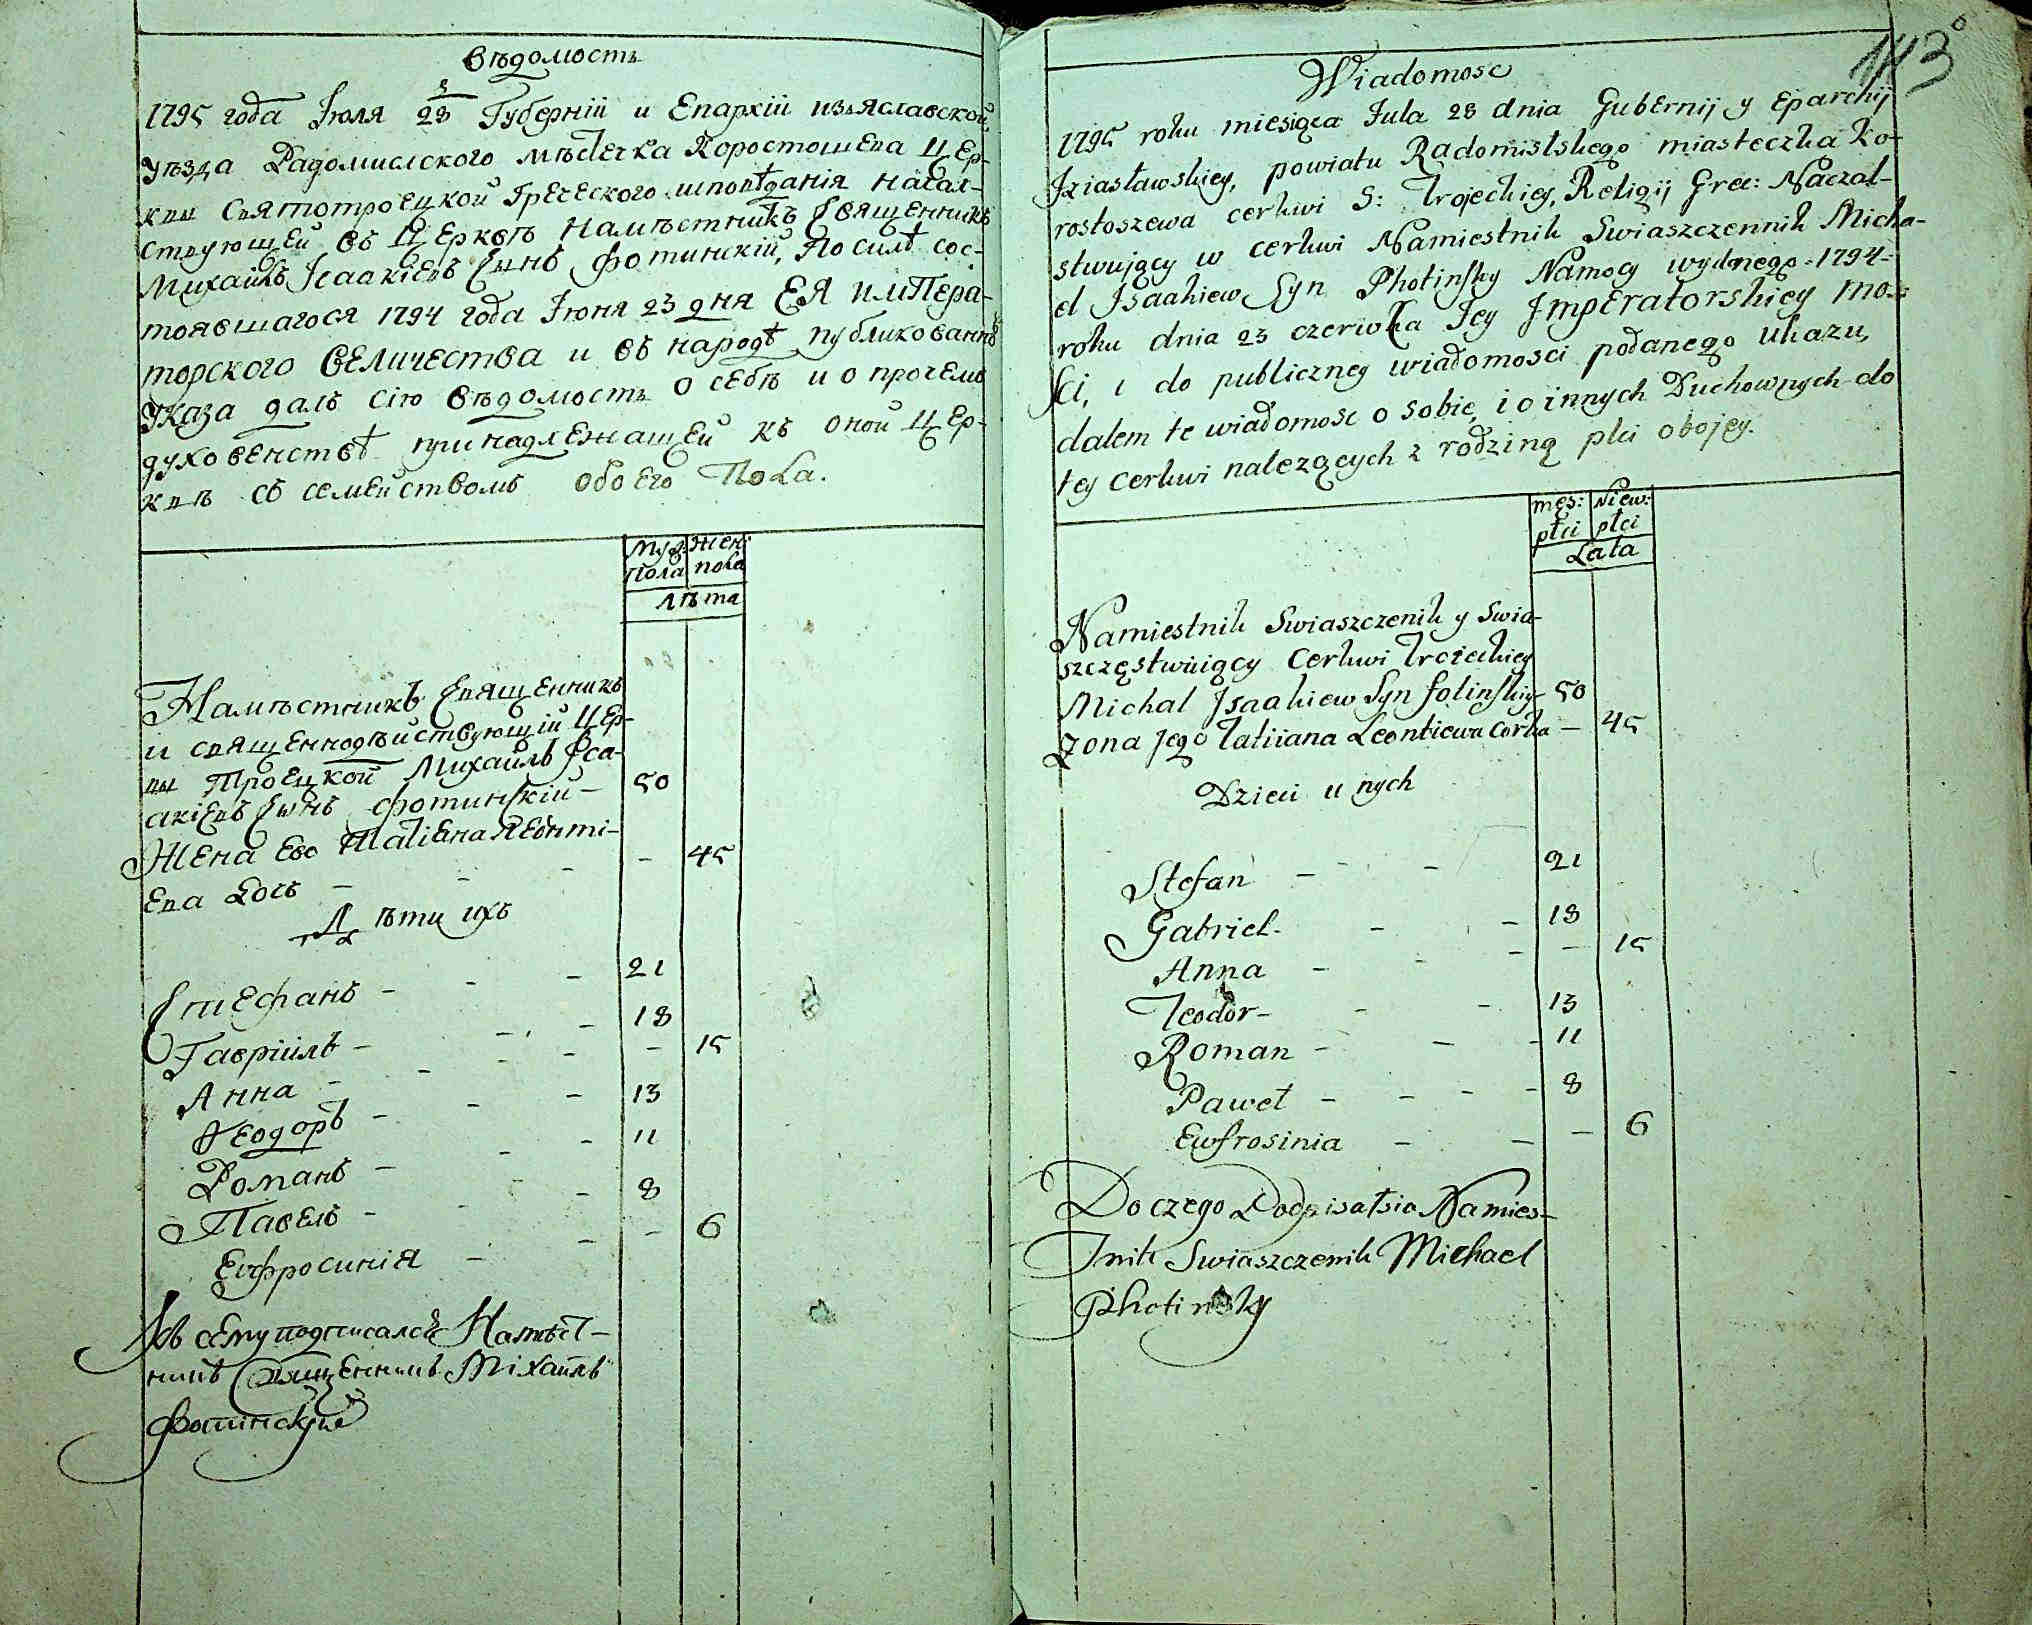 Вѣдомость
1795 года Іюля 28 Губерніи и Епархіи изъяславской,
уѣзда Радомислского мѣстечка Коростошева Цер-
кви Святотроецкой Греческого исповѣданія началс-
ствующей въ Церквѣ Намѣстникъ Священникъ
Михаилъ Ісаакіевъ Сынъ Фотинскій, По силѣ сос-
тоявшагося 1794 года Іюня 23 дня ЕЯ имПера-
торского величества и въ народѣ публикованнѣ
указа далъ сію вѣдомость о себѣ и о прочемъ
духовенствѣ принадлежащей къ оной Цер-
квѣ съ семействомъ обоего Пола.
Муз: Жен:
Пола пола
лѣта
Намѣстникъ Священникъ
и священнодѣйствующій Цер-
вы Троецкой Михаилъ Іса-
акіевъ Сынъ Фотинскій — 50
Жена Ево Татіана Леонті-
ева Дочь — — — — 45
Дѣти ихъ
Стефанъ — — — 21
Гавріилъ — — — 18
Анна — — — — 15
Ѳеодоръ — — — 13
Романъ — — — 11
Павелъ — — — 8
Еѵфросинія — — — 6
Къ сему подписался Намѣст-
никъ Священникъ Міхаилъ
Фотинскій
143
Wiadomosc
1795 roku miesiąca Jula 28 dnia Gubernij y Eparchij
Iziasławskiey, powiatu Radomislskego miasteczka Ko-
rostoszewa cerkwi S: Trojeckiey, Religij Grec: Naczal-
stwujący w cerkwi Namiestnik Swiaszczennik Micha-
el Isaakiew Syn Photinsky Namocy wydanego 1794-
roku dnia 23 czerwca Jey Imperatorskiey Mo-
sci, i do publiczney wiadomosci podanego ukazu,
dalem te wiadomosc o sobie, i o innych Duchownych do
tey cerkwi nalezących z rodziną płci obojey.
męs: Niew:
płci płci
Lata
Namiestnik Swiaszczenik y Swia-
szczęstwuiący Cerkwi Troieckiey
Michal Isaakiew Syn fotinskiy 50
Zona Jego Tatiiana Leontiewa Corka — 45
Dzieci u nych
Stefan — — 21
Gabriel. — — 18
Anna — — — — 15
Teodor — — — 13
Roman — — — 11
Paweł — — — — 8
Ewfrosinia — — — 6
Do czego Podpisałsia Namies-
tnik Swiaszczenik Michael
Photinsky